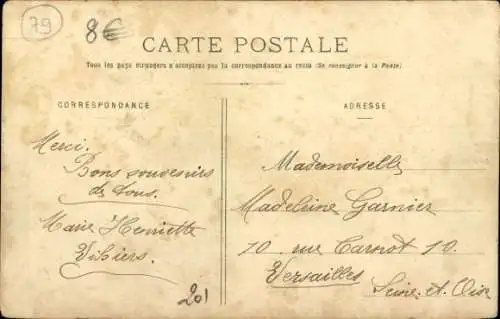 79
8€
CARTE POSTALE
Tous les pays étrangers n'acceptent pas la correspondance au recto (Se renseigner à la Poste)
CORRESPONDANCE
ADRESSE
Merci.
Bons souvenirs
de tous.
Marie Henriette
Mademoiselle
Madeleine Garnier
10 rue Carnot 10.
Versailles
Seine-et-Oise
201